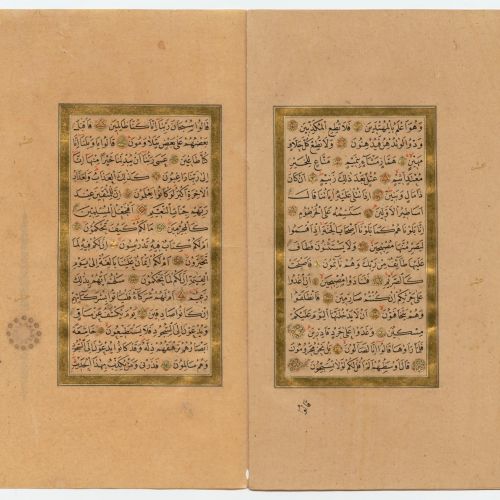 وَهُوَ اَعْلَمُ بِالْمُهْتَدِينَ فَلَا تُطِعِ الْمُكَذِّبِينَ
وَدُّوا لَوْ تُدْهِنُ فَيُدْهِنُونَ وَلَا تُطِعْ كُلَّ حَلَّافٍ
مَهِينٍ هَمَّازٍ مَشَّاءٍ بِنَمِيمٍ مَنَّاعٍ لِلْخَيْرِ
مُعْتَدٍ اَثِيمٍ عُتُلٍّ بَعْدَ ذٰلِكَ زَنِيمٍ اَنْ كَانَ
ذَا مَالٍ وَبَنِينَ اِذَا تُتْلٰى عَلَيْهِ اٰيَاتُنَا قَالَ
اَسَاطِيرُ الْاَوَّلِينَ سَنَسِمُهُ عَلَى الْخُرْطُومِ
اِنَّا بَلَوْنَاهُمْ كَمَا بَلَوْنَا اَصْحَابَ الْجَنَّةِ اِذْ اَقْسَمُوا
لَيَصْرِمُنَّهَا مُصْبِحِينَ وَلَا يَسْتَثْنُونَ فَطَافَ
عَلَيْهَا طَائِفٌ مِنْ رَبِّكَ وَهُمْ نَائِمُونَ فَاَصْبَحَتْ
كَالصَّرِيمِ فَتَنَادَوْا مُصْبِحِينَ اَنِ اغْدُوا
عَلٰى حَرْثِكُمْ اِنْ كُنْتُمْ صَارِمِينَ فَانْطَلَقُوا
وَهُمْ يَتَخَافَتُونَ اَنْ لَا يَدْخُلَنَّهَا الْيَوْمَ عَلَيْكُمْ
مِسْكِينٌ وَغَدَوْا عَلٰى حَرْدٍ قَادِرِينَ
فَلَمَّا رَاَوْهَا قَالُوا اِنَّا لَضَالُّونَ بَلْ نَحْنُ مَحْرُومُونَ
قَالَ اَوْسَطُهُمْ اَلَمْ اَقُلْ لَكُمْ لَوْلَا تُسَبِّحُونَ
قالوا
قَالُوا سُبْحَانَ رَبِّنَا اِنَّا كُنَّا ظَالِمِينَ فَاَقْبَلَ
بَعْضُهُمْ عَلٰى بَعْضٍ يَتَلَاوَمُونَ قَالُوا يَا وَيْلَنَا اِنَّا
كُنَّا طَاغِينَ عَسٰى رَبُّنَا اَنْ يُبْدِلَنَا خَيْرًا مِنْهَا اِنَّا
اِلٰى رَبِّنَا رَاغِبُونَ كَذٰلِكَ الْعَذَابُ وَلَعَذَابُ
الْاٰخِرَةِ اَكْبَرُ لَوْ كَانُوا يَعْلَمُونَ اِنَّ لِلْمُتَّقِينَ عِنْدَ
رَبِّهِمْ جَنَّاتِ النَّعِيمِ اَفَنَجْعَلُ الْمُسْلِمِينَ
كَالْمُجْرِمِينَ مَا لَكُمْ كَيْفَ تَحْكُمُونَ
اَمْ لَكُمْ كِتَابٌ فِيهِ تَدْرُسُونَ اِنَّ لَكُمْ فِيهِ لَمَا
تَخَيَّرُونَ اَمْ لَكُمْ اَيْمَانٌ عَلَيْنَا بَالِغَةٌ اِلٰى يَوْمِ
الْقِيٰمَةِ اِنَّ لَكُمْ لَمَا تَحْكُمُونَ سَلْهُمْ اَيُّهُمْ بِذٰلِكَ
زَعِيمٌ اَمْ لَهُمْ شُرَكَاءُ فَلْيَأْتُوا بِشُرَكَائِهِمْ
اِنْ كَانُوا صَادِقِينَ يَوْمَ يُكْشَفُ عَنْ سَاقٍ
وَيُدْعَوْنَ اِلَى السُّجُودِ فَلَا يَسْتَطِيعُونَ خَاشِعَةً
اَبْصَارُهُمْ تَرْهَقُهُمْ ذِلَّةٌ وَقَدْ كَانُوا يُدْعَوْنَ اِلَى السُّجُودِ
وَهُمْ سَالِمُونَ فَذَرْنِي وَمَنْ يُكَذِّبُ بِهٰذَا الْحَدِيثِ